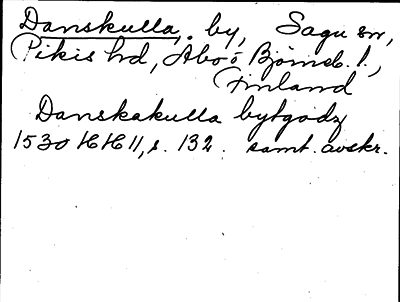 Danskulla, by, Sagu sn,
Pikis hd, Åbo o Björneb. l.,
Finland
Danskakulla bytgodz
1530 HH II, s. 132. samt. avskr.